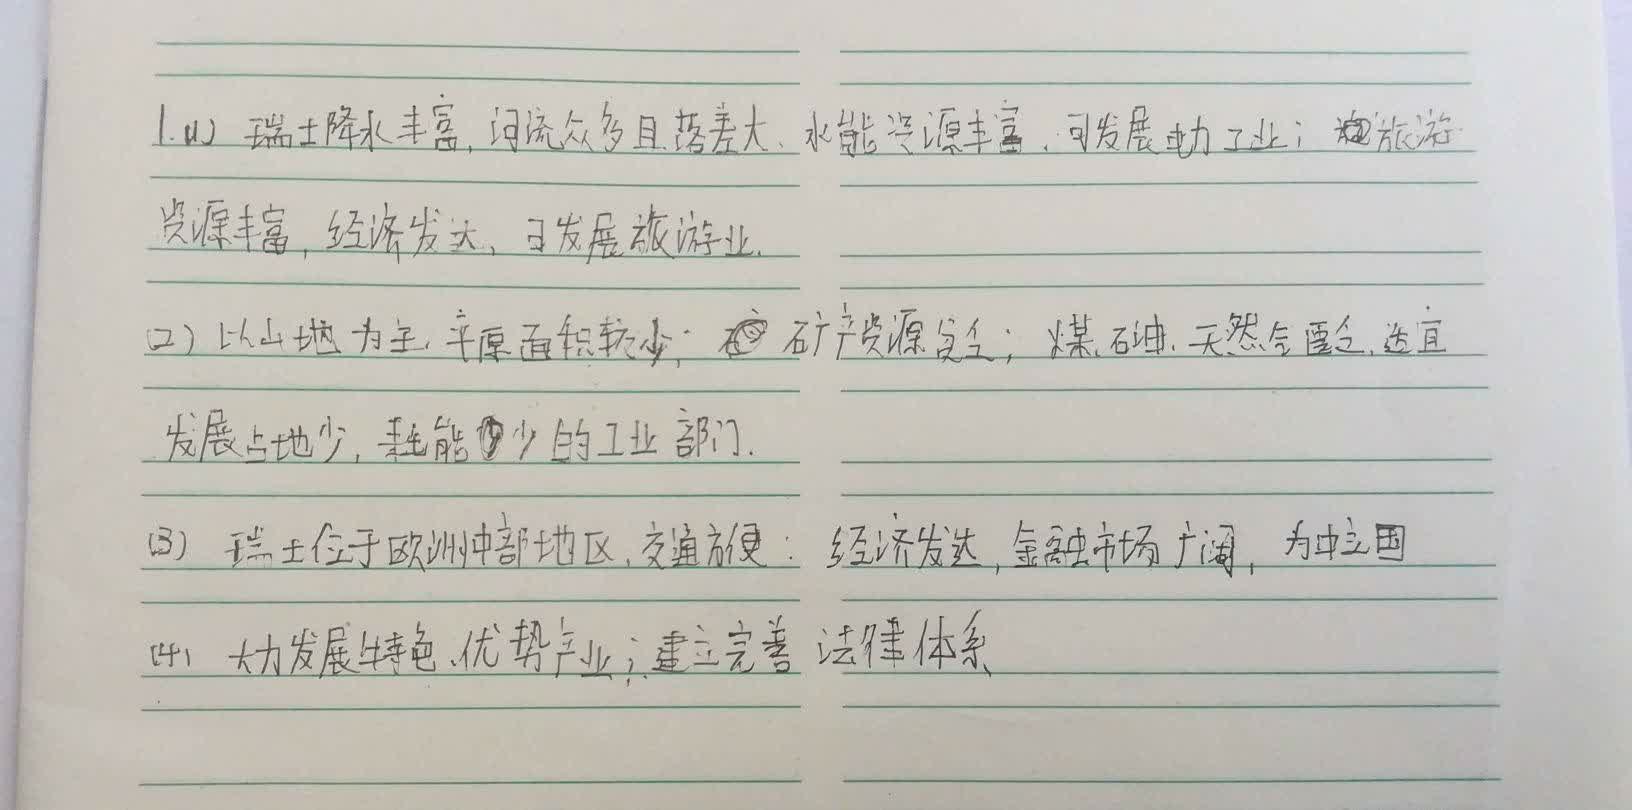 1.(1) 瑞士降水丰富,河流众多且落差大、水能资源丰富,可发展电力工业;旅游
资源丰富,经济发达,可发展旅游业.
(2) 以山地为主,平原面积较少;矿产资源贫乏;煤、石油、天然气匮乏,适宜
发展占地少,耗能少的工业部门.
(3) 瑞士位于欧洲中部地区,交通方便;经济发达,金融市场广阔,为中立国
(4) 大力发展特色、优势产业;建立完善法律体系